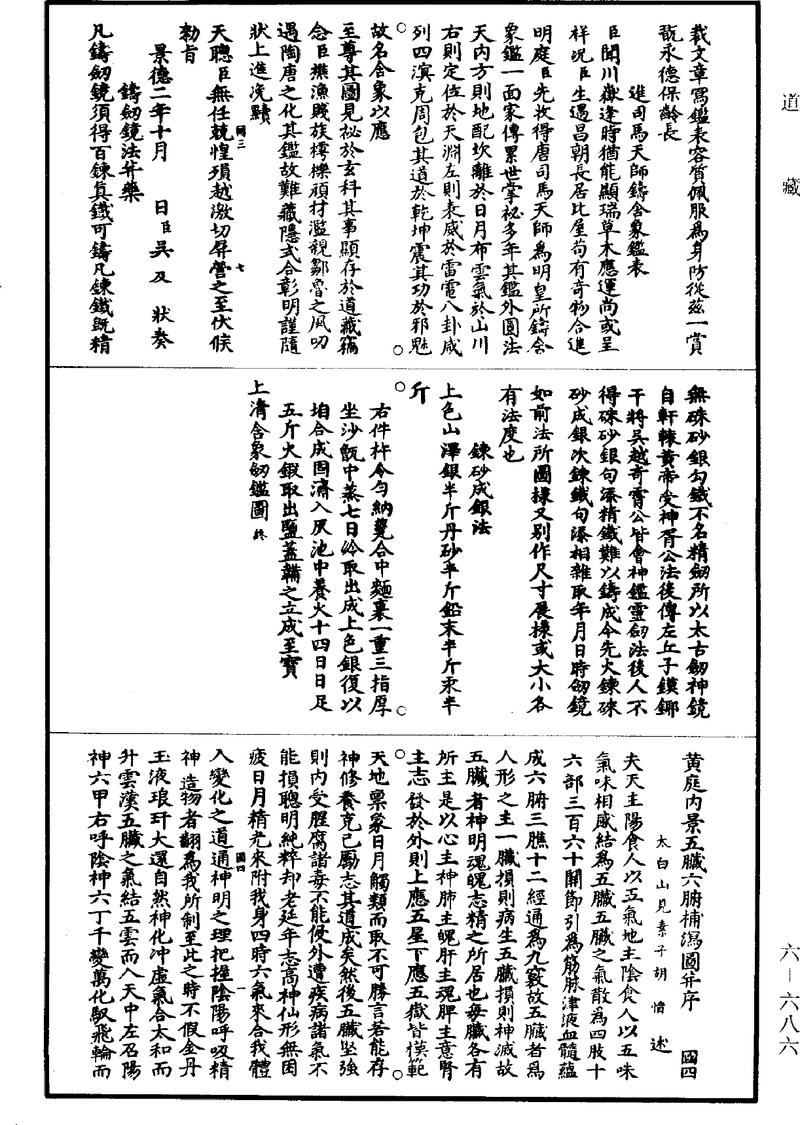 道藏
六一六八六
載文章寫鑑表容質佩服為身防從茲一賞
翫永德保齡長
進司馬天師鑄含象鑑表
臣聞川嶽逢時猶能顯瑞草木應運尚或呈
祥況臣生遇昌朝長居比屋苟有奇物合進
明庭臣先次得唐司馬天師為明皇所鑄含
象鑑一面家傳累世掌祕多年其鑑外圓法
天內方則地配坎離於日月布雲氣於山川
右則定位於天淵左則表威於雷電八卦咸
列四瀆克周包其道於乾坤震其功於邪魅
故名含象以應
至尊其圖見祕於玄科其事顯存於道藏竊
念臣樵漁賤族樗櫟頑材濫觀鄒魯之風叨
遇陶唐之化其鑑故難藏隱式合彰明謹隨
狀上進洗黷
國三
七
天聰臣無任兢惶殞越激切屏營之至伏候
勑旨
景德二年十月 日臣吳及 狀奏
鑄劒鏡法并藥
凡鑄劒鏡須得百鍊真鐵可鑄凡鍊鐵既精
無硃砂銀勾鐵不名精劒所以太古劒神鏡
自軒轅黃帝受神胥公法後傳左丘子鏌鋣
干將吳越奇霄公皆會神鑑靈劒法後人不
得硃砂銀句添精鐵難以鑄成今先火鍊硃
砂成銀次鍊鐵句添相雜取年月日時劒鏡
如前法所圖樣又別作尺寸展樣或大小各
有法度也
鍊砂成銀法
上色山澤銀半斤丹砂半斤鉛末半斤汞半
斤
右件杵令勻納甆合中麵裹一重三指厚
坐沙甑中蒸七日冷取出成上色銀復以
垍合成固濟入灰池中養火十四日日足
五斤火鍛取出鹽蓋鞴之立成至寶
上清含象劒鑑圖 終
黃庭內景五臟六腑補瀉圖并序 國四
太白山見素子胡愔述
夫天主陽食人以五氣地主陰食人以五味
氣味相感結為五臟五臟之氣散為四肢十
六部三百六十關節引為筋脉津液血髓蘊
成六腑三膲十二經通為九竅故五臟者為
人形之主一臟損則病生五臟損則神滅故
五臟者神明魂魄志精之所居也每臟各有
所主是以心主神肺主魄肝主魂脾主意腎
主志發於外則上應五星下應五嶽皆模範
天地稟象日月觸類而取不可勝言若能存
神修養克己勵志其道成矣然後五臟堅強
則內受腥腐諸毒不能侵外遭疾病諸氣不
能損聰明純粹却老延年志高神仙形無困
疲日月精光來附我身四時六氣來合我體
國四
一
入變化之道通神明之理把握陰陽呼吸精
神造物者翻為我所制至此之時不假金丹
玉液琅玕大還自然神化沖虛氣合太和而
升雲漢五臟之氣結五雲而入天中左召陽
神六甲右呼陰神六丁千變萬化馭飛輪而